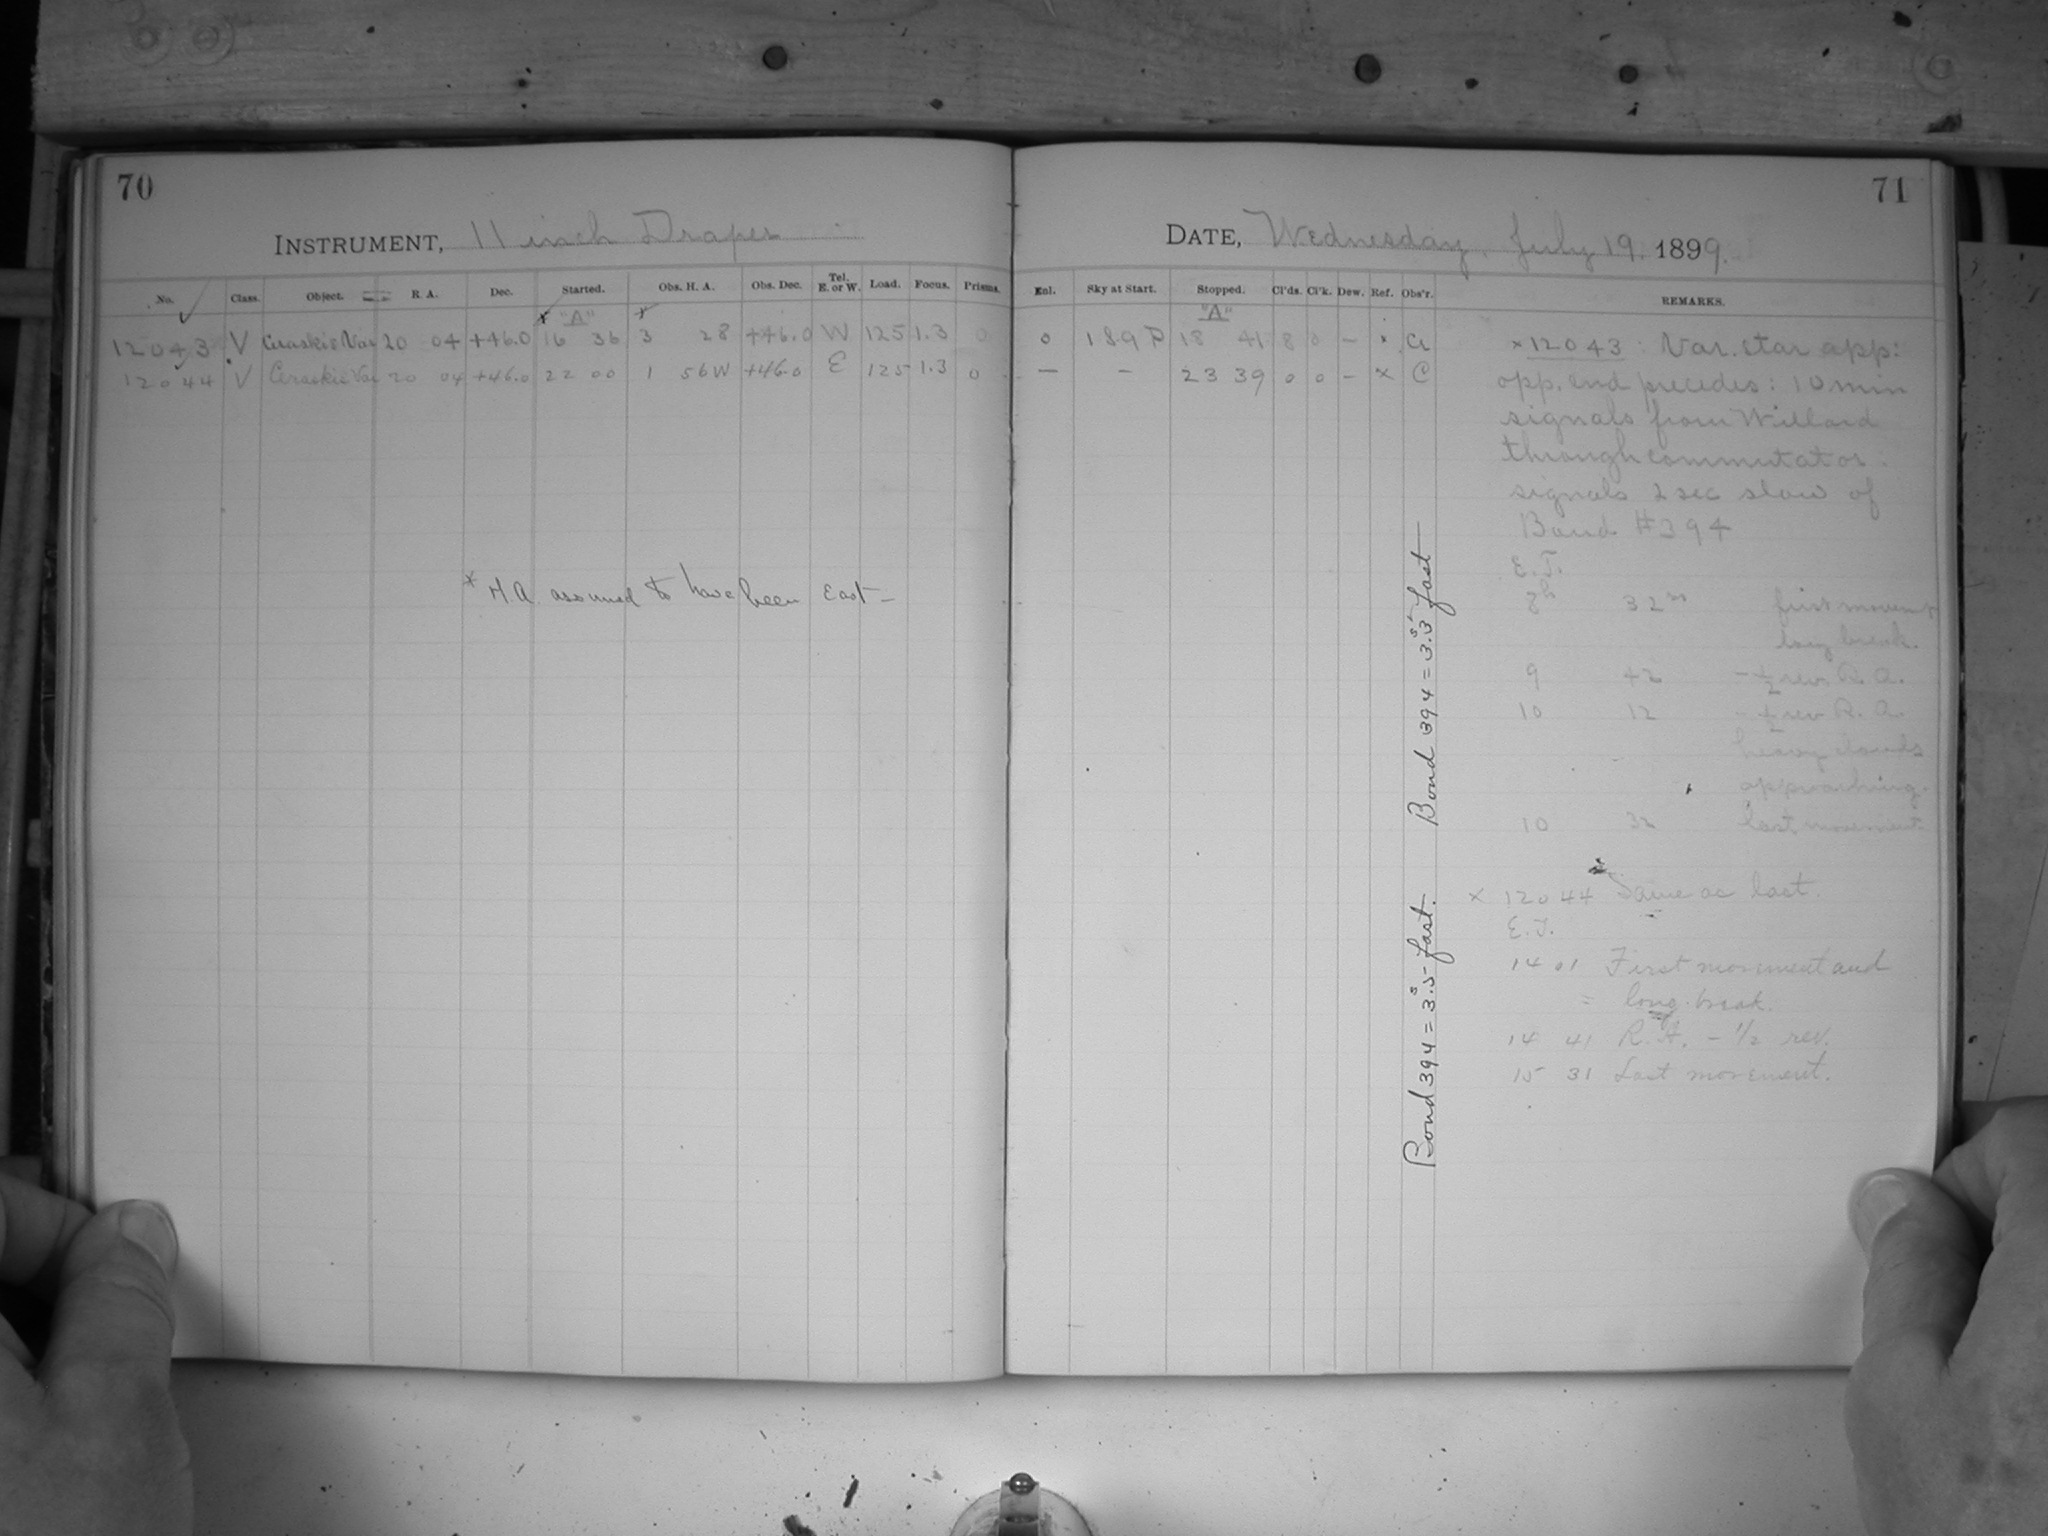 70
INSTRUMENT, 11 inch Draper
No. Class. Object. R. A. Dec. Started. Obs. H. A. Obs. Dec. Tel. E. or W. Load. Focus. Prisms.
"A"
12043 V Ceraskis Var 20 04 +46.0 16 36 3 28 +46.0 W 125 1.3 0
12044 V Ceraskis Var 20 04 +46.0 22 00 1 56W +46.0 E 125 1.3 0
* H.A. assumed to have been East -
71
DATE, Wednesday, July 19, 1899.
Enl. Sky at Start. Stopped. Cl'ds. Cl'k. Dew. Ref. Obs'r. REMARKS.
"A"
0 189 P 18 41 8 0 - x
— - 23 39 0 0 - x C
x 12043: Var. star app:
opp. end precedes: 10 min
signals from Willard
through commutator.
signals 2 sec slow of
Bond #394
E.T.
8h 32m first movement
long break.
9 42 - 1/2 rev. R.A.
10 12 - 1/2 rev R.A.
heavy clouds
approaching.
10 32 last movement.
x 12044 Same as last.
E.T.
14 01 First movement and
= long break.
14 41 R.A. - 1/2 rev.
15 31 Last movement.
Bond 394 = 3.5s fast. Bond 394 = 3.3s fast